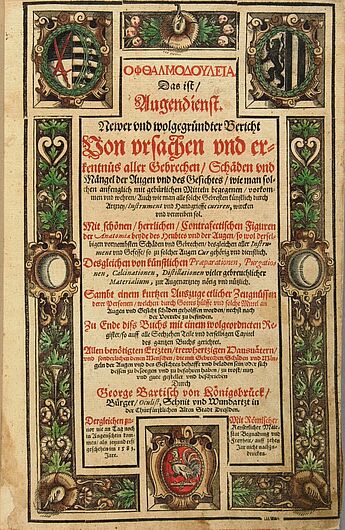 ΟΦΘΑΛΜΟΔΟΥΛΕΙΑ,
Das ist/
Augendienst.
Newer vnd wolgegründter Bericht
Von vrsachen vnd er-
kentnüs aller Gebrechen/ Schäden vnd
Mängel der Augen vnd des Gesichtes/ wie man sol-
chen anfenglich mit gebürlichen Mitteln begegenen/ vorkom-
men vnd wehren/ Auch wie man alle solche Gebresten künstlich durch
Artzney/ Instrument vnd Handgrieffe curiren, wircken
vnd vertreiben sol.
Mit schönen/ herrlichen/ Contrafectischen Figuren
der Anatomia beyde des Heubtes vnd der Augen/ so wol dersel-
bigen vornembsten Schäden vnd Gebrechen/ desgleichen aller Instru-
ment vnd Gefesse/ so zu solcher Augen Cur gehörig vnd dienstlich.
Desgleichen von künstlichen Præparationen, Purgatio-
nen, Calcinationen, Distillationen vieler gebreuchlicher
Materialium, zur Augenartzney nötig vnd nützlich.
Sambt einem kurtzen Auszuge etlicher Zeugnüssen
derer Personen/ welchen durch Gottes hülffe vnd solche Mittel an
Augen vnd Gesicht schäden geholffen worden/ nechst nach
der Vorrede zu befinden.
Zu Ende diss Buchs mit einem wolgeordneten Re-
gister/ so auff alle Sechzehen Teile vnd derselbigen Capitel
des gantzen Buchs gerichtet.
Allen benötigten Ertzten/ trewhertzigen Hausvätern/
vnd sonderlichen denen Menschen/ die mit Gebrechen Schäden vnd Män-
geln der Augen vnd des Gesichtes behafft vnd beladen sein/ oder sich
dessen zu besorgen vnd zu befahren haben/ zu trost/ nutz
vnd gute gestellet vnd beschrieben
Durch
George Bartisch von Königsbrück/
Bürger/ Oculist, Schnit vnd Wundartzt in
der Churfürstlichen Alten Stadt Dreßden.
Dergleichen zu-
vor nie an Tag noch
in Augenschein kom-
men/ als jegund erst
geschehen im 1583.
Jare.
Mit Römischer
Keyserlicher Maie-
stat Begnadung vnd
Freyheit/ auff zehen
Jar nicht nachzu-
drucken.